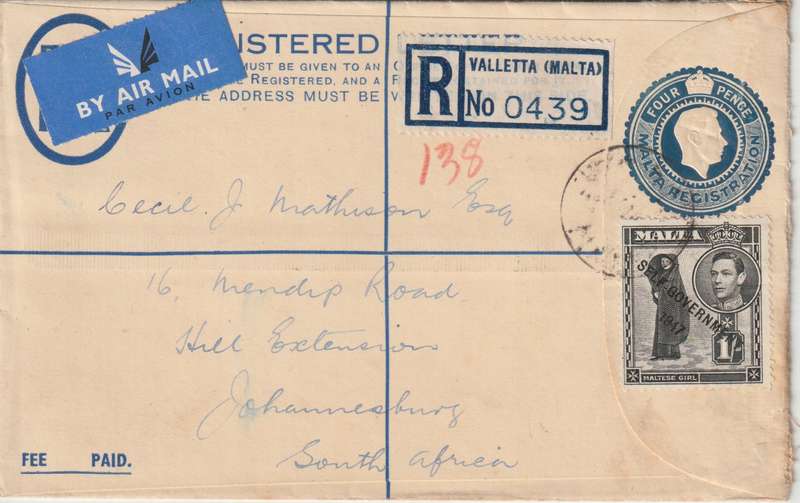 ISTERED
MUST BE GIVEN TO AN
E REGISTERED, AND A
E ADDRESS MUST BE
BY AIR MAIL
PAR AVION
R
VALLETTA (MALTA)
No 0439
FOUR PENCE
MALTA REGISTRATION
138
Cecil. J Mathison Esq
16, Mendip Road
Hill Extension
Johannesburg
South Africa
MALTA
SELF-GOVERNM
1947
1/-
MALTESE GIRL
FEE PAID.